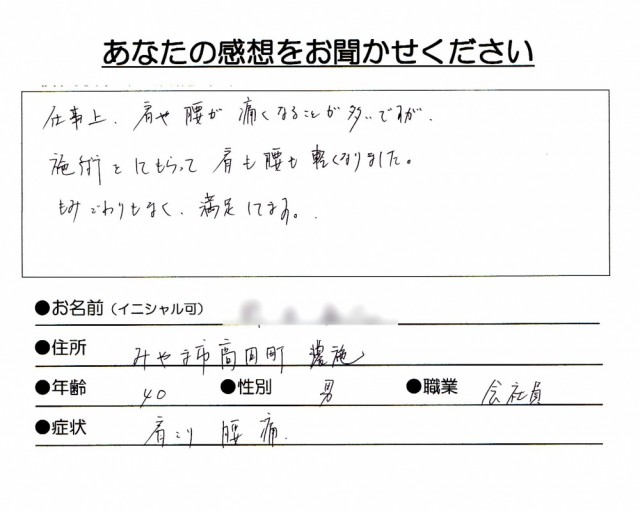 あなたの感想をお聞かせください
仕事上、肩や腰が痛くなることが多いですが、
施術をしてもらって肩も腰も軽くなりました。
もみごわりもなく、満足してます。
●お名前（イニシャル可）
●住所 みやま市高田町 濃施
●年齢 40 ●性別 男 ●職業 会社員
●症状 肩こり 腰痛